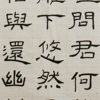 問君何
下悠然
與還幽